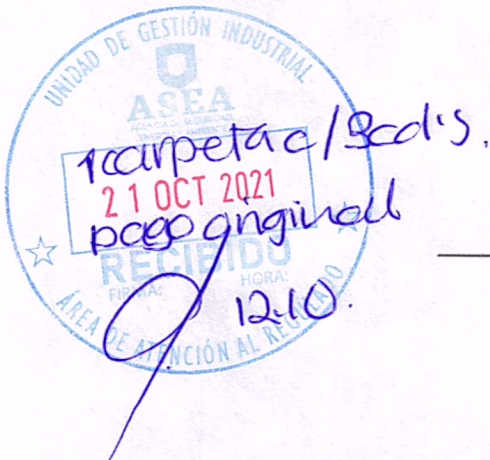 UNIDAD DE GESTIÓN INDUSTRIAL
ASEA
1 carpeta c/3cd's.
21 OCT 2021
pago original
RECIBIDO
FIRMA: HORA:
12:10.
ÁREA DE ATENCIÓN AL REGULADO